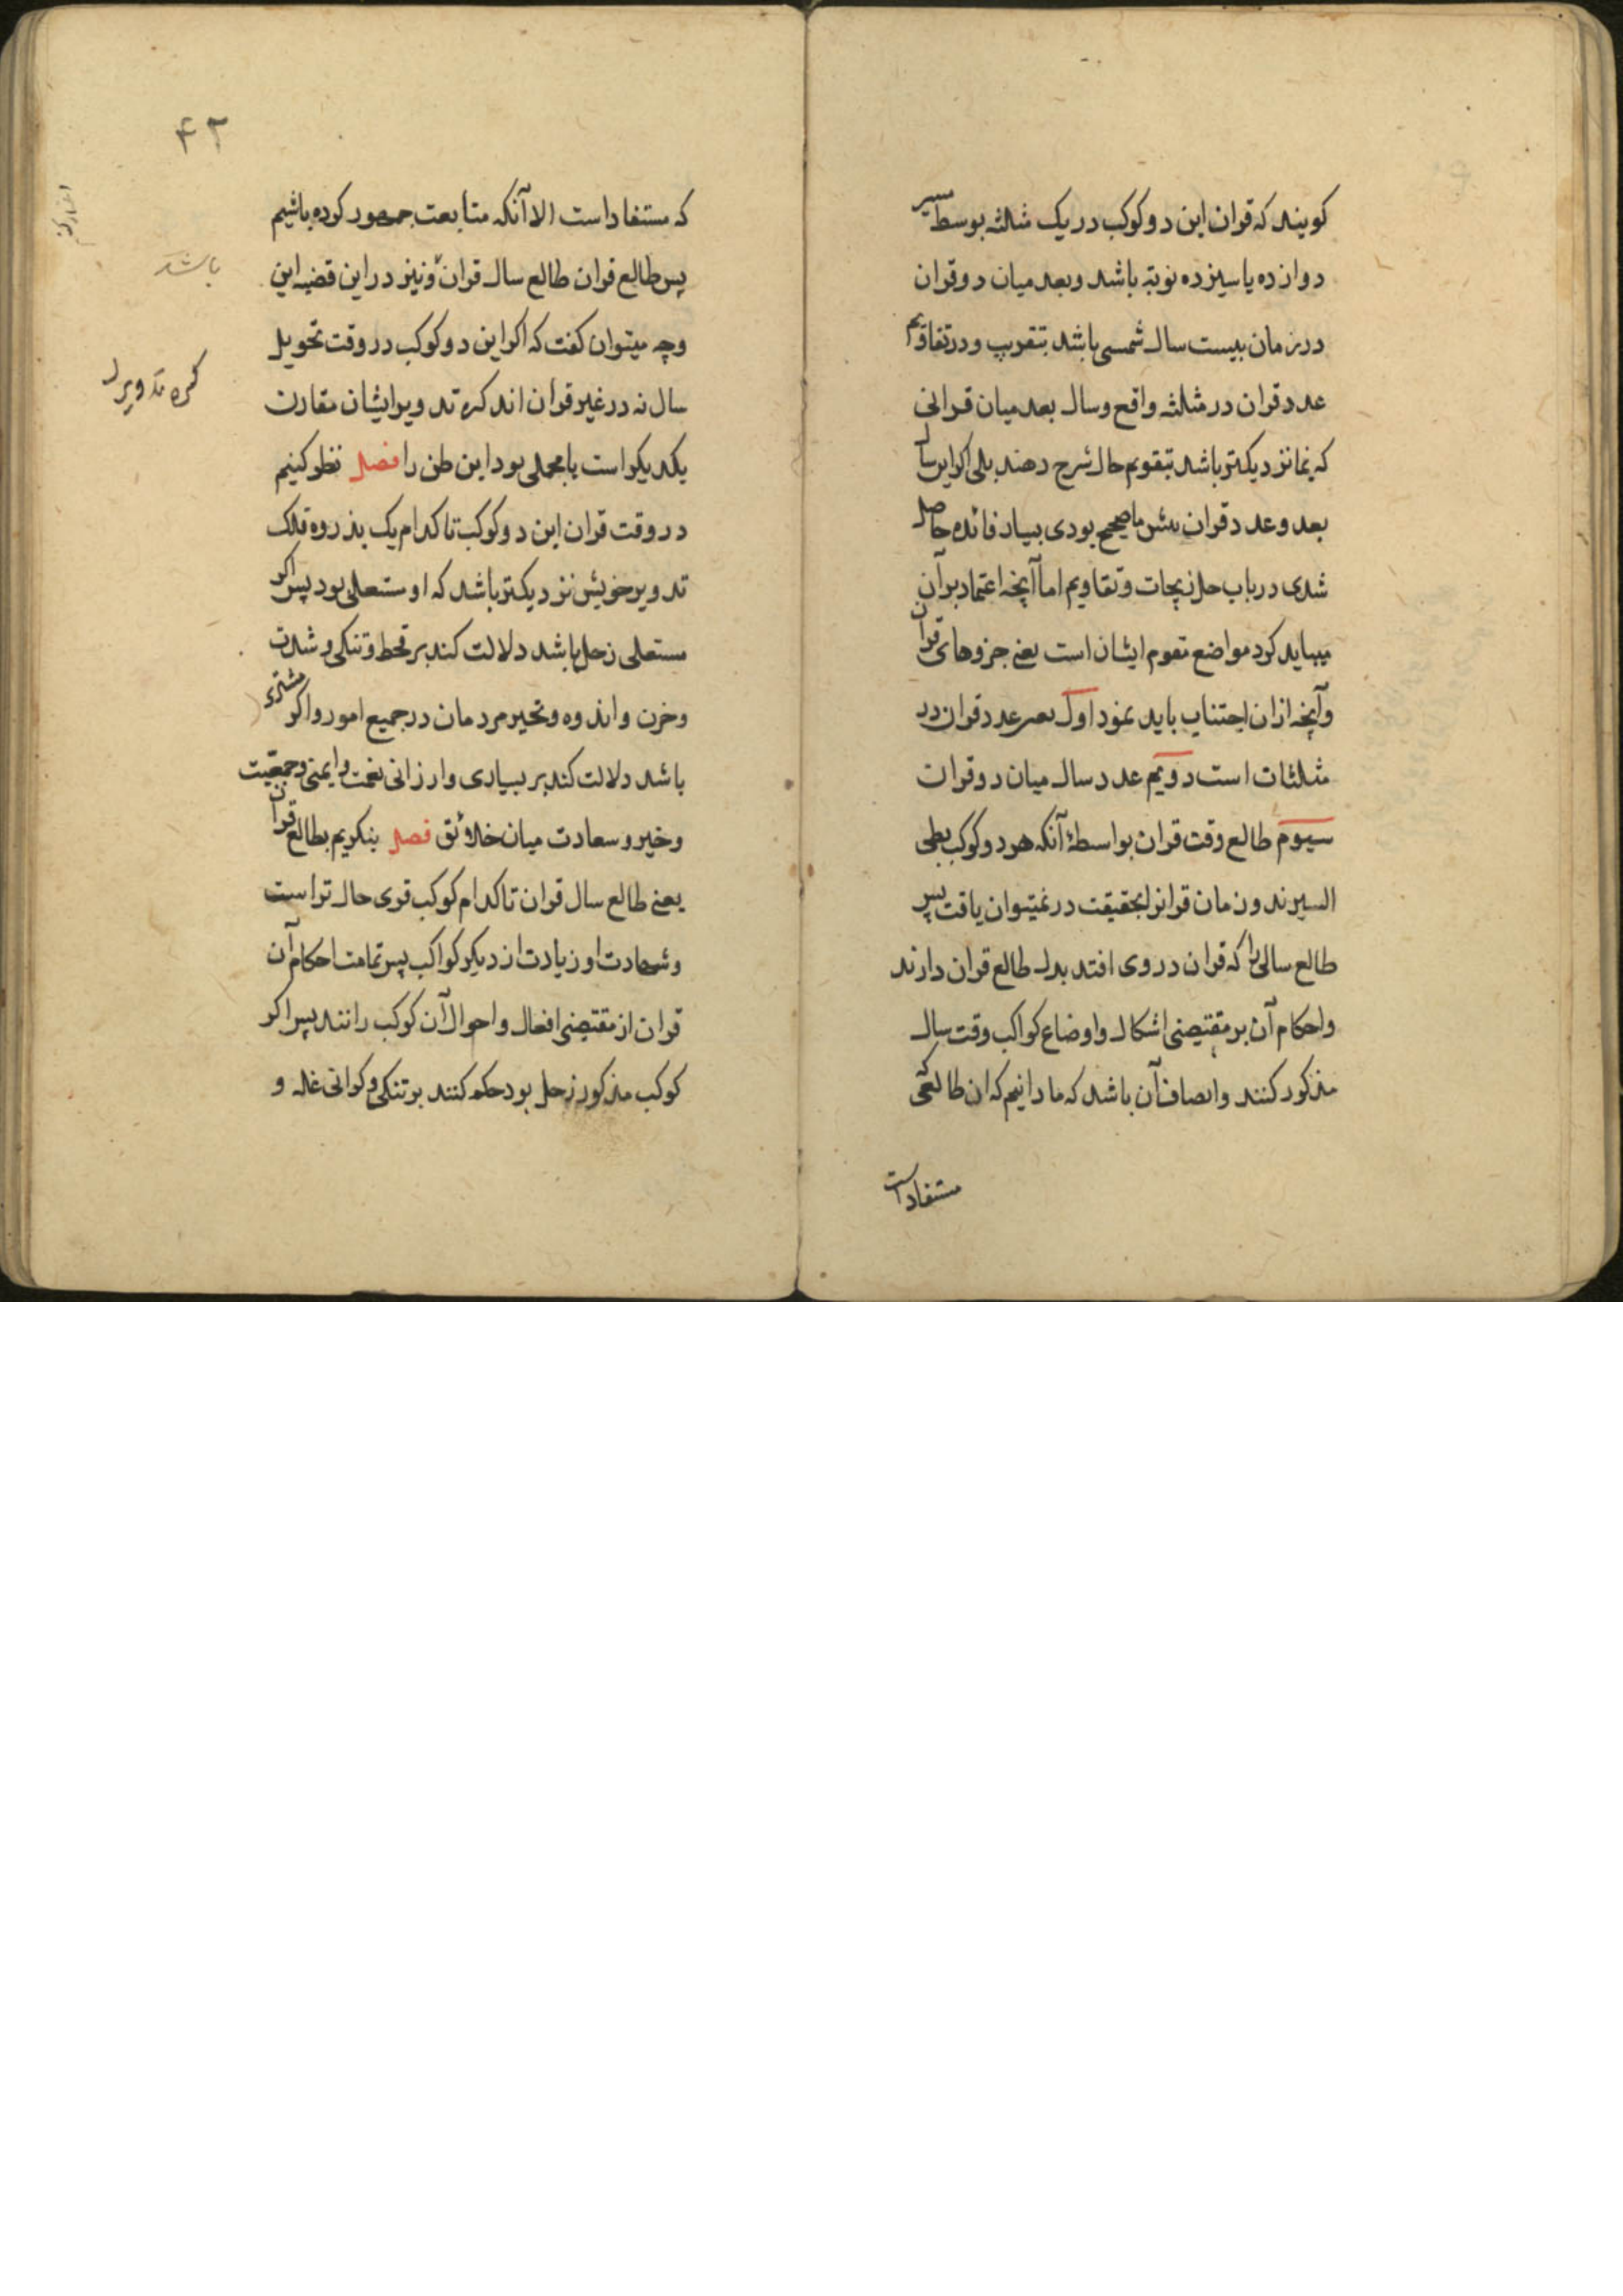 کویند که قران این دو کوکب در یک مثلثه بوسط مسیر
دوازده یا سیزده نوبة باشد و بعد میان دو قران
در زمان بیست سال شمسی باشد بتقریب و در تقاویم
عدد قران در مثلثه واقع و سال بعد میان قرانی
که نزدیکتر باشد بتقویم حال شرح دهند بلی اکر این سال
بعد و عدد قران صحیح بودی بسیار فائده حاصل
شدی در باب حل زیجات و تقاویم اما آنچه اعتماد بر آن
میباید کرد مواضع تقویم ایشان است یعنی جزوهای قران
وآنچه از ان اجتناب باید نمود اول عدد قران در
مثلثات است دویم عدد سال میان دو قران
سیوم طالع وقت قران بواسطهٔ آنکه هر دو کوکب بطی
السیرند و زمان قرانرا بحقیقت در نمیتوان یافت پس
طالع سالی را که قران در وی افتد بدل طالع قران دارند
واحکام آن بر مقتضی اشکال و اوضاع کواکب وقت سال
مذکور کنند وانصاف آن باشد که ما دانیم که ان طالعی که
مستفاد است
۴۲
که مستفاد است الا آنکه متأبعت جمهور کرده باشیم
پس طالع قران طالع سال قران و نیز در این قضیه این
باشد
وجه میتوان کفت که اکر این دو کوکب در وقت تحویل
سال نه در غیر قرأن اند کره تدویر ایشان مقارن
کره تدویر
یکدیکر است یا محلی بود این ظن را فصل نظر کنیم
در وقت قران این دو کوکب تا کدام یک بذروه فلک
تدویر خویش نزدیکتر باشد که او مستعلی بود پس اکر
مستعلی زحل باشد دلالت کند بر قحط و تنکی و شدت
وحزن واندوه وتحیر مردمان در جمیع امور و اکر مشتری
باشد دلالت کند بر بسیاری وارزانی نعمت وایمنی وجمعیت
وخیر و سعادت میان خلائق فصل بنکریم بطالع قران
یعنی طالع سال قران تا کدام کوکب قوی حال تر است
وشهادت او زیادت از دیکر کواکب پس تمامت احکام آن
قران از مقتضی افعال و احوال آن کوکب رانند پس اکر
کوکب مذکور زحل بود حکم کنند بر تنکی و کرانی غله و